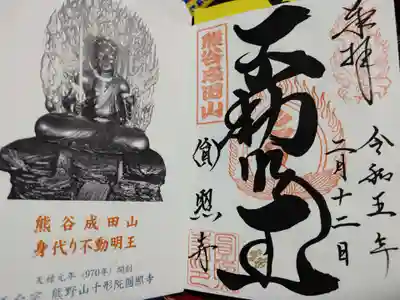 奉拝
令和五年
二月十二日
熊谷成田山
不動明王
圓照寺
熊谷成田山
身代り不動明王
天禄元年(970年)開創
熊野山十形院圓照寺